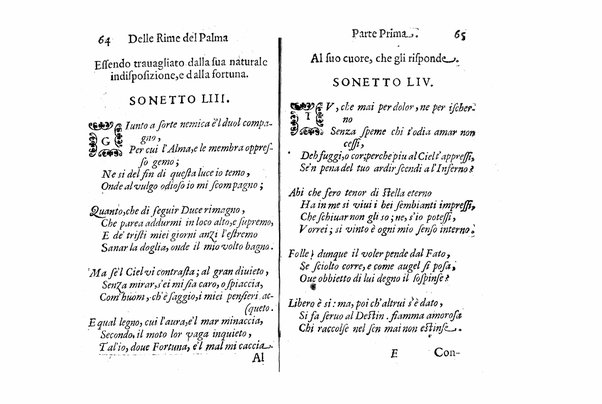 64 Delle Rime del Palma
Essendo trauagliato dalla sua naturale
indisposizione, e dalla fortuna.
SONETTO LIII.
GIunto a sorte nemica è'l duol compa-
gno,
Per cui l'Alma, e le membra oppres-
so gemo;
Ne si del fin di questa luce io temo,
Onde al vulgo odioso io mi scompagno;
Quanto, che di seguir Duce rimagno,
Che parea addurmi in loco alto, e supremo,
E de' tristi miei giorni anzi l'estremo
Sanar la doglia, onde il mio volto bagno.
Ma se'l Ciel vi contrasta; al gran diuieto,
Senza mirar, s'ei mi sia caro, o spiaccia,
Com'huom, ch'è saggio, i miei pensieri ac-
(queto.
E qual legno, cui l'aura, e'l mar minaccia,
Secondo, il moto lor vaga inquieto,
Tal'io, doue Fortuna, e'l mal mi caccia.
Al
Parte Prima. 65
Al suo cuore, che gli risponde.
SONETTO LIV.
TV, che mai per dolor, ne per ischer-
no
Senza speme chi t'odia amar non
cessi,
Deh fuggi, o cor; perche piu al Ciel t'appressi,
Se'n pena del tuo ardir scendi a l'Inferno?
Ahi che fero tenor di stella eterno
Ha in me si viui i bei sembianti impressi,
Che schiuar non gli so; ne, s'io potessi,
Vorrei; si vinto è ogni mio senso interno.
Folle; dunque il voler pende dal Fato,
Se sciolto corre, e come augel si posa,
Oue obbietto di lui degno il sospinse?
Libero è si: ma, poi ch'altrui s'è dato,
Si fa seruo al Destin. fiamma amorosa
Chi raccolse nel sen mai non estinse.
E Con-